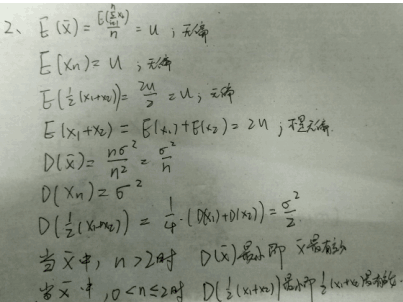 2、E(x̄) = E(Σxᵢ)/n = u ; 无偏
E(xn) = u ; 无偏
E(½(x₁+x₂)) = 2u/2 = u ; 无偏
E(x₁+x₂) = E(x₁)+E(x₂) = 2u ; 不是无偏.
D(x̄) = nσ²/n² = σ²/n
D(xn) = σ²
D(½(x₁+x₂)) = ¼·(D(x₁)+D(x₂)) = σ²/2
当x̄中, n>2时 D(x̄)最小即 x̄最有效
当x̄中, 0<n≤2时 D(½(x₁+x₂))最小即½(x₁+x₂)最有效.